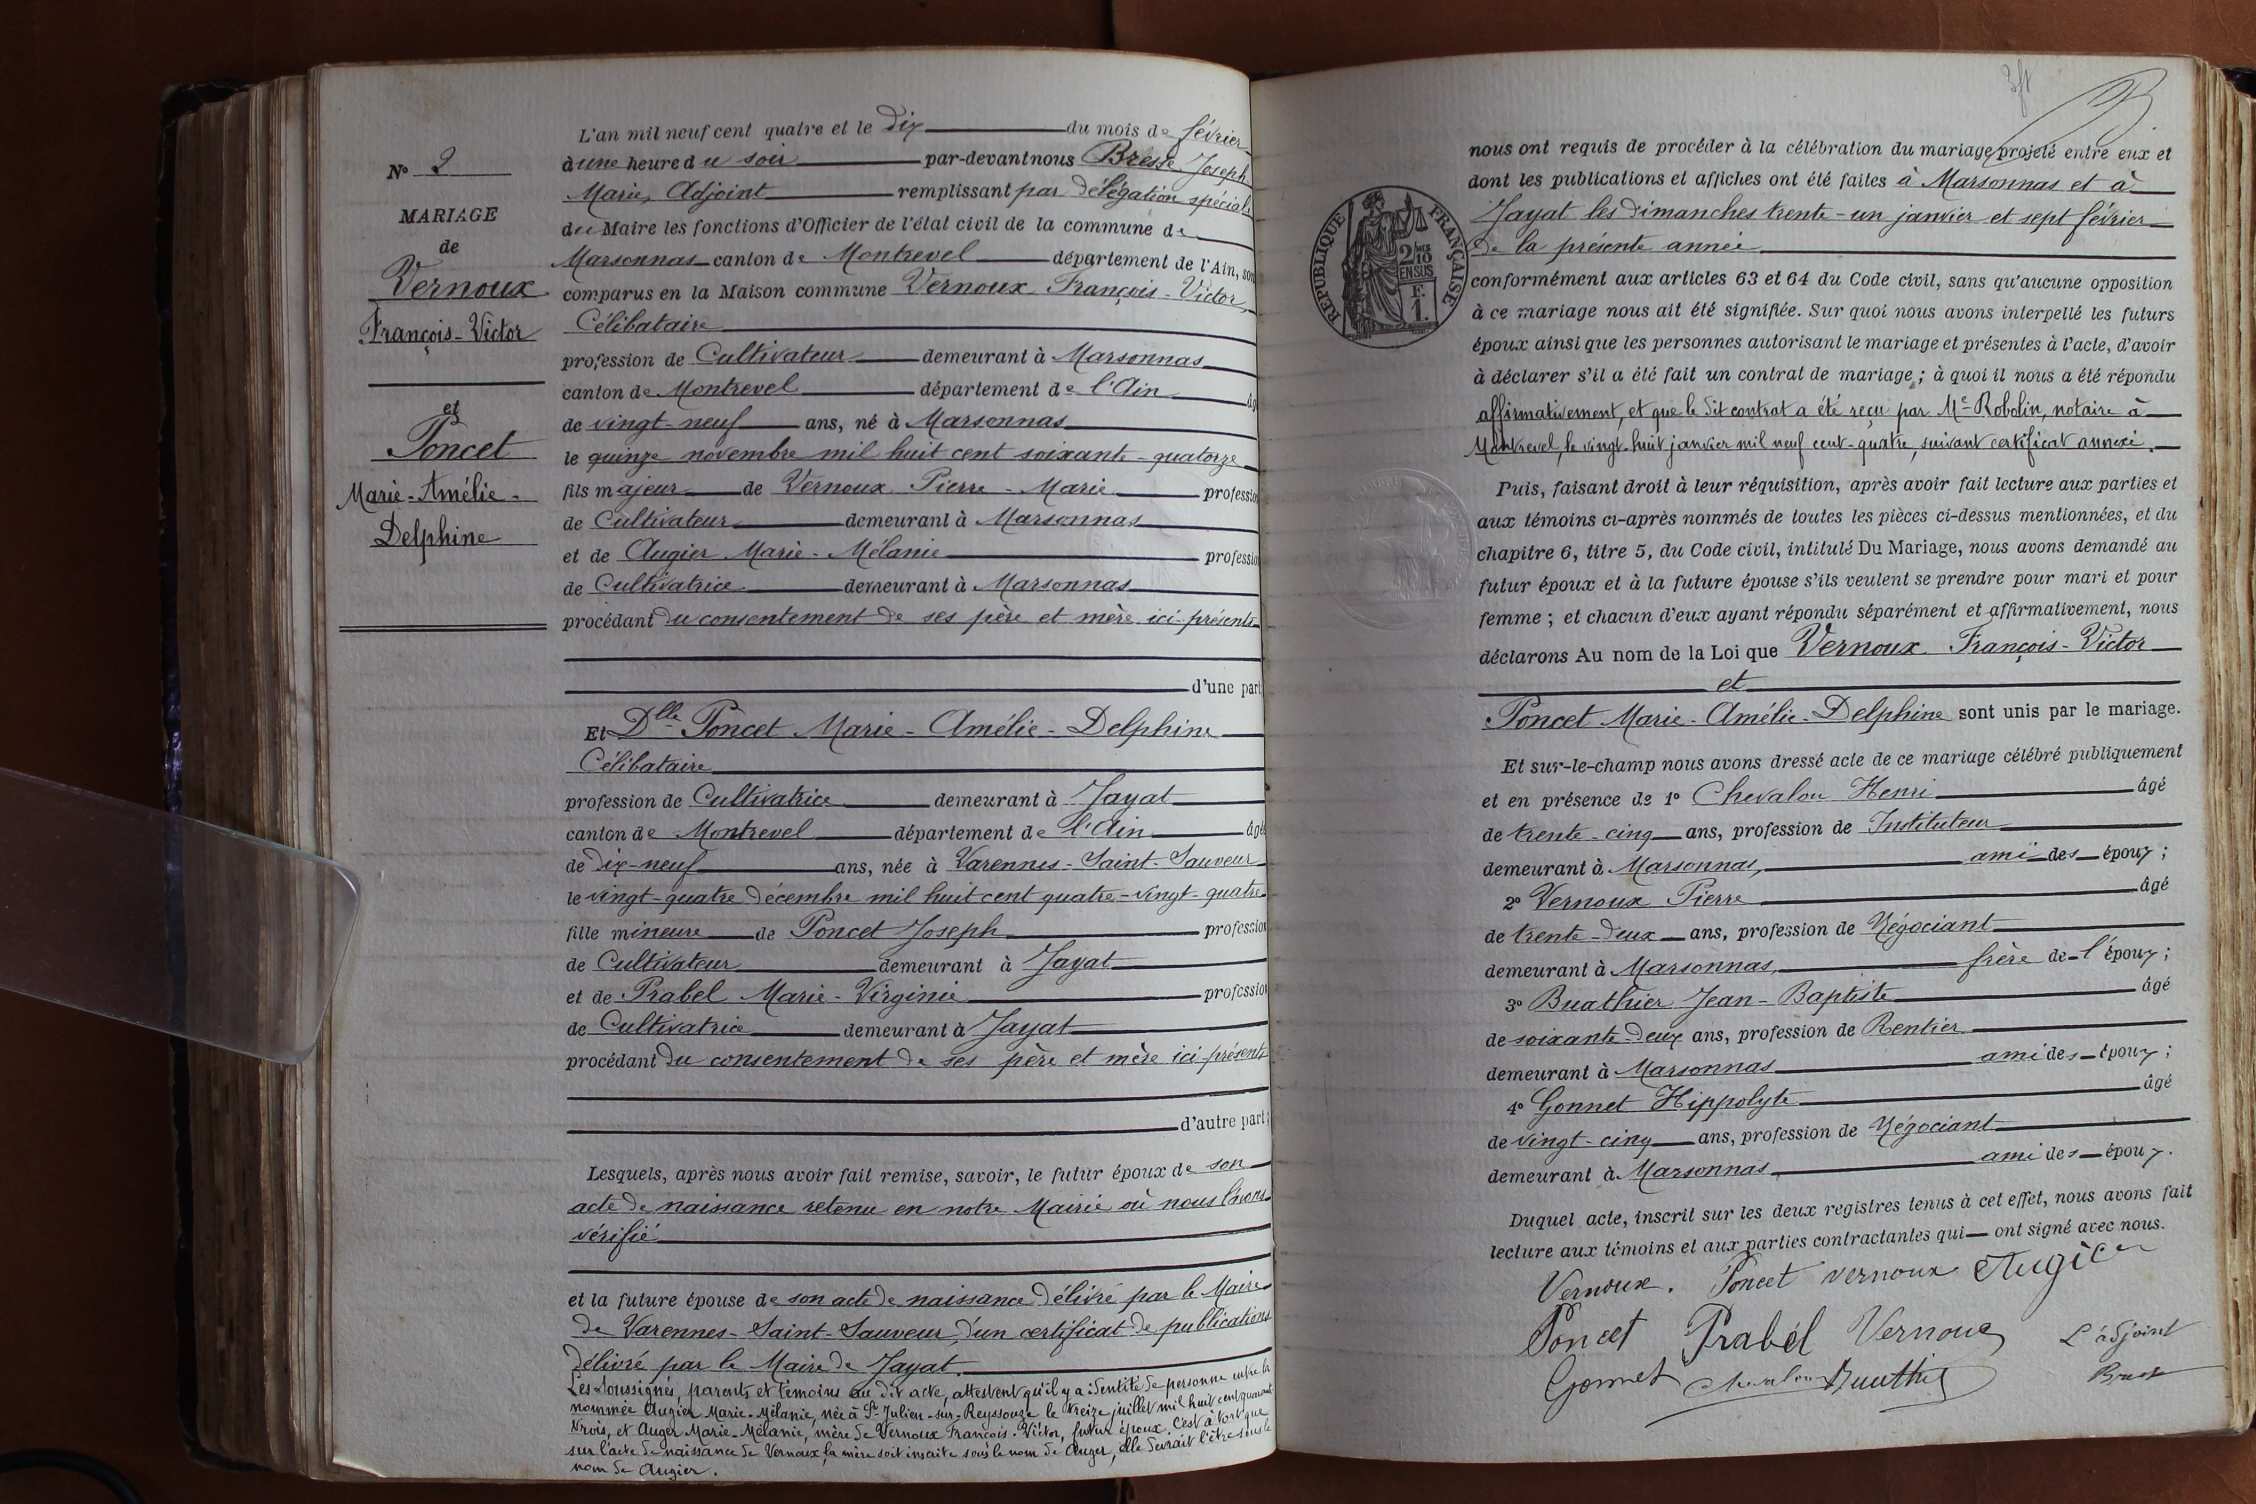 N° 2
MARIAGE
de
Vernoux
François-Victor
et
Poncet
Marie-Amélie-
Delphine
L'an mil neuf cent quatre et le dix du mois de février
à une heure du soir par-devant nous Breste Joseph
Marie, Adjoint remplissant par délégation spéciale
du Maire les fonctions d'Officier de l'état civil de la commune de
Marsonnas canton de Montrevel département de l'Ain, sont
comparus en la Maison commune Vernoux François-Victor,
Célibataire
profession de Cultivateur demeurant à Marsonnas
canton de Montrevel département de l'Ain âg
de vingt-neuf ans, né à Marsonnas
le quinze novembre mil huit cent soixante-quatorze
fils majeur de Vernoux Pierre-Marie profession
de Cultivateur demeurant à Marsonnas
et de Augier Marie-Mélanie profession
de Cultivatrice demeurant à Marsonnas
procédant du consentement de ses père et mère ici présents
d'une part
Et Dlle Poncet Marie-Amélie-Delphine
Célibataire
profession de Cultivatrice demeurant à Jayat
canton de Montrevel département de l'Ain âgée
de dix-neuf ans, née à Varennes-Saint-Sauveur
le vingt-quatre décembre mil huit cent quatre-vingt-quatre
fille mineure de Poncet Joseph profession
de Cultivateur demeurant à Jayat
et de Prabel Marie-Virginie profession
de Cultivatrice demeurant à Jayat
procédant du consentement de ses père et mère ici présents
d'autre part;
Lesquels, après nous avoir fait remise, savoir, le futur époux de son
acte de naissance retenu en notre Mairie où nous l'avons
vérifié
et la future épouse de son acte de naissance délivré par le Maire
de Varennes-Saint-Sauveur, d'un certificat de publications
délivré par le Maire de Jayat.
Les soussignés, parents et témoins au dit acte, attestent qu'il y a identité de personne entre la
nommée Augier Marie-Mélanie, née à St Julien-sur-Reyssouze le treize juillet mil huit cent quarante
trois, et Auger Marie-Mélanie, mère de Vernoux François-Victor, futur époux. C'est à tort que
sur l'acte de naissance de Vernoux, sa mère soit inscrite sous le nom de Auger, elle devrait l'être sous le
nom de Augier.
REPUBLIQUE FRANÇAISE
2/10
EN SUS
F.
1.
nous ont requis de procéder à la célébration du mariage projeté entre eux et
dont les publications et affiches ont été faites à Marsonnas et à
Jayat les dimanches trente-un janvier et sept février
de la présente année
conformément aux articles 63 et 64 du Code civil, sans qu'aucune opposition
à ce mariage nous ait été signifiée. Sur quoi nous avons interpellé les futurs
époux ainsi que les personnes autorisant le mariage et présentes à l'acte, d'avoir
à déclarer s'il a été fait un contrat de mariage; à quoi il nous a été répondu
affirmativement, et que le dit contrat a été reçu par Me Robolin, notaire à
Montrevel, le vingt-huit janvier mil neuf cent-quatre, suivant certificat annexé.
Puis, faisant droit à leur réquisition, après avoir fait lecture aux parties et
aux témoins ci-après nommés de toutes les pièces ci-dessus mentionnées, et du
chapitre 6, titre 5, du Code civil, intitulé Du Mariage, nous avons demandé au
futur époux et à la future épouse s'ils veulent se prendre pour mari et pour
femme; et chacun d'eux ayant répondu séparément et affirmativement, nous
déclarons Au nom de la Loi que Vernoux François-Victor
et
Poncet Marie-Amélie-Delphine sont unis par le mariage.
Et sur-le-champ nous avons dressé acte de ce mariage célébré publiquement
et en présence de 1° Chevalon Henri âgé
de trente-cinq ans, profession de Instituteur
demeurant à Marsonnas, ami des époux;
2° Vernoux Pierre âgé
de trente-deux ans, profession de Négociant
demeurant à Marsonnas, frère de l'époux;
3° Buathier Jean-Baptiste âgé
de soixante-deux ans, profession de Rentier
demeurant à Marsonnas ami des époux;
4° Gonnet Hippolyte âgé
de vingt-cinq ans, profession de Négociant
demeurant à Marsonnas ami des époux.
Duquel acte, inscrit sur les deux registres tenus à cet effet, nous avons fait
lecture aux témoins et aux parties contractantes qui ont signé avec nous.
Vernoux. Poncet vernoux Augier
Poncet Prabel Vernoux L'adjoint
Gonnet Chevalon Buathier